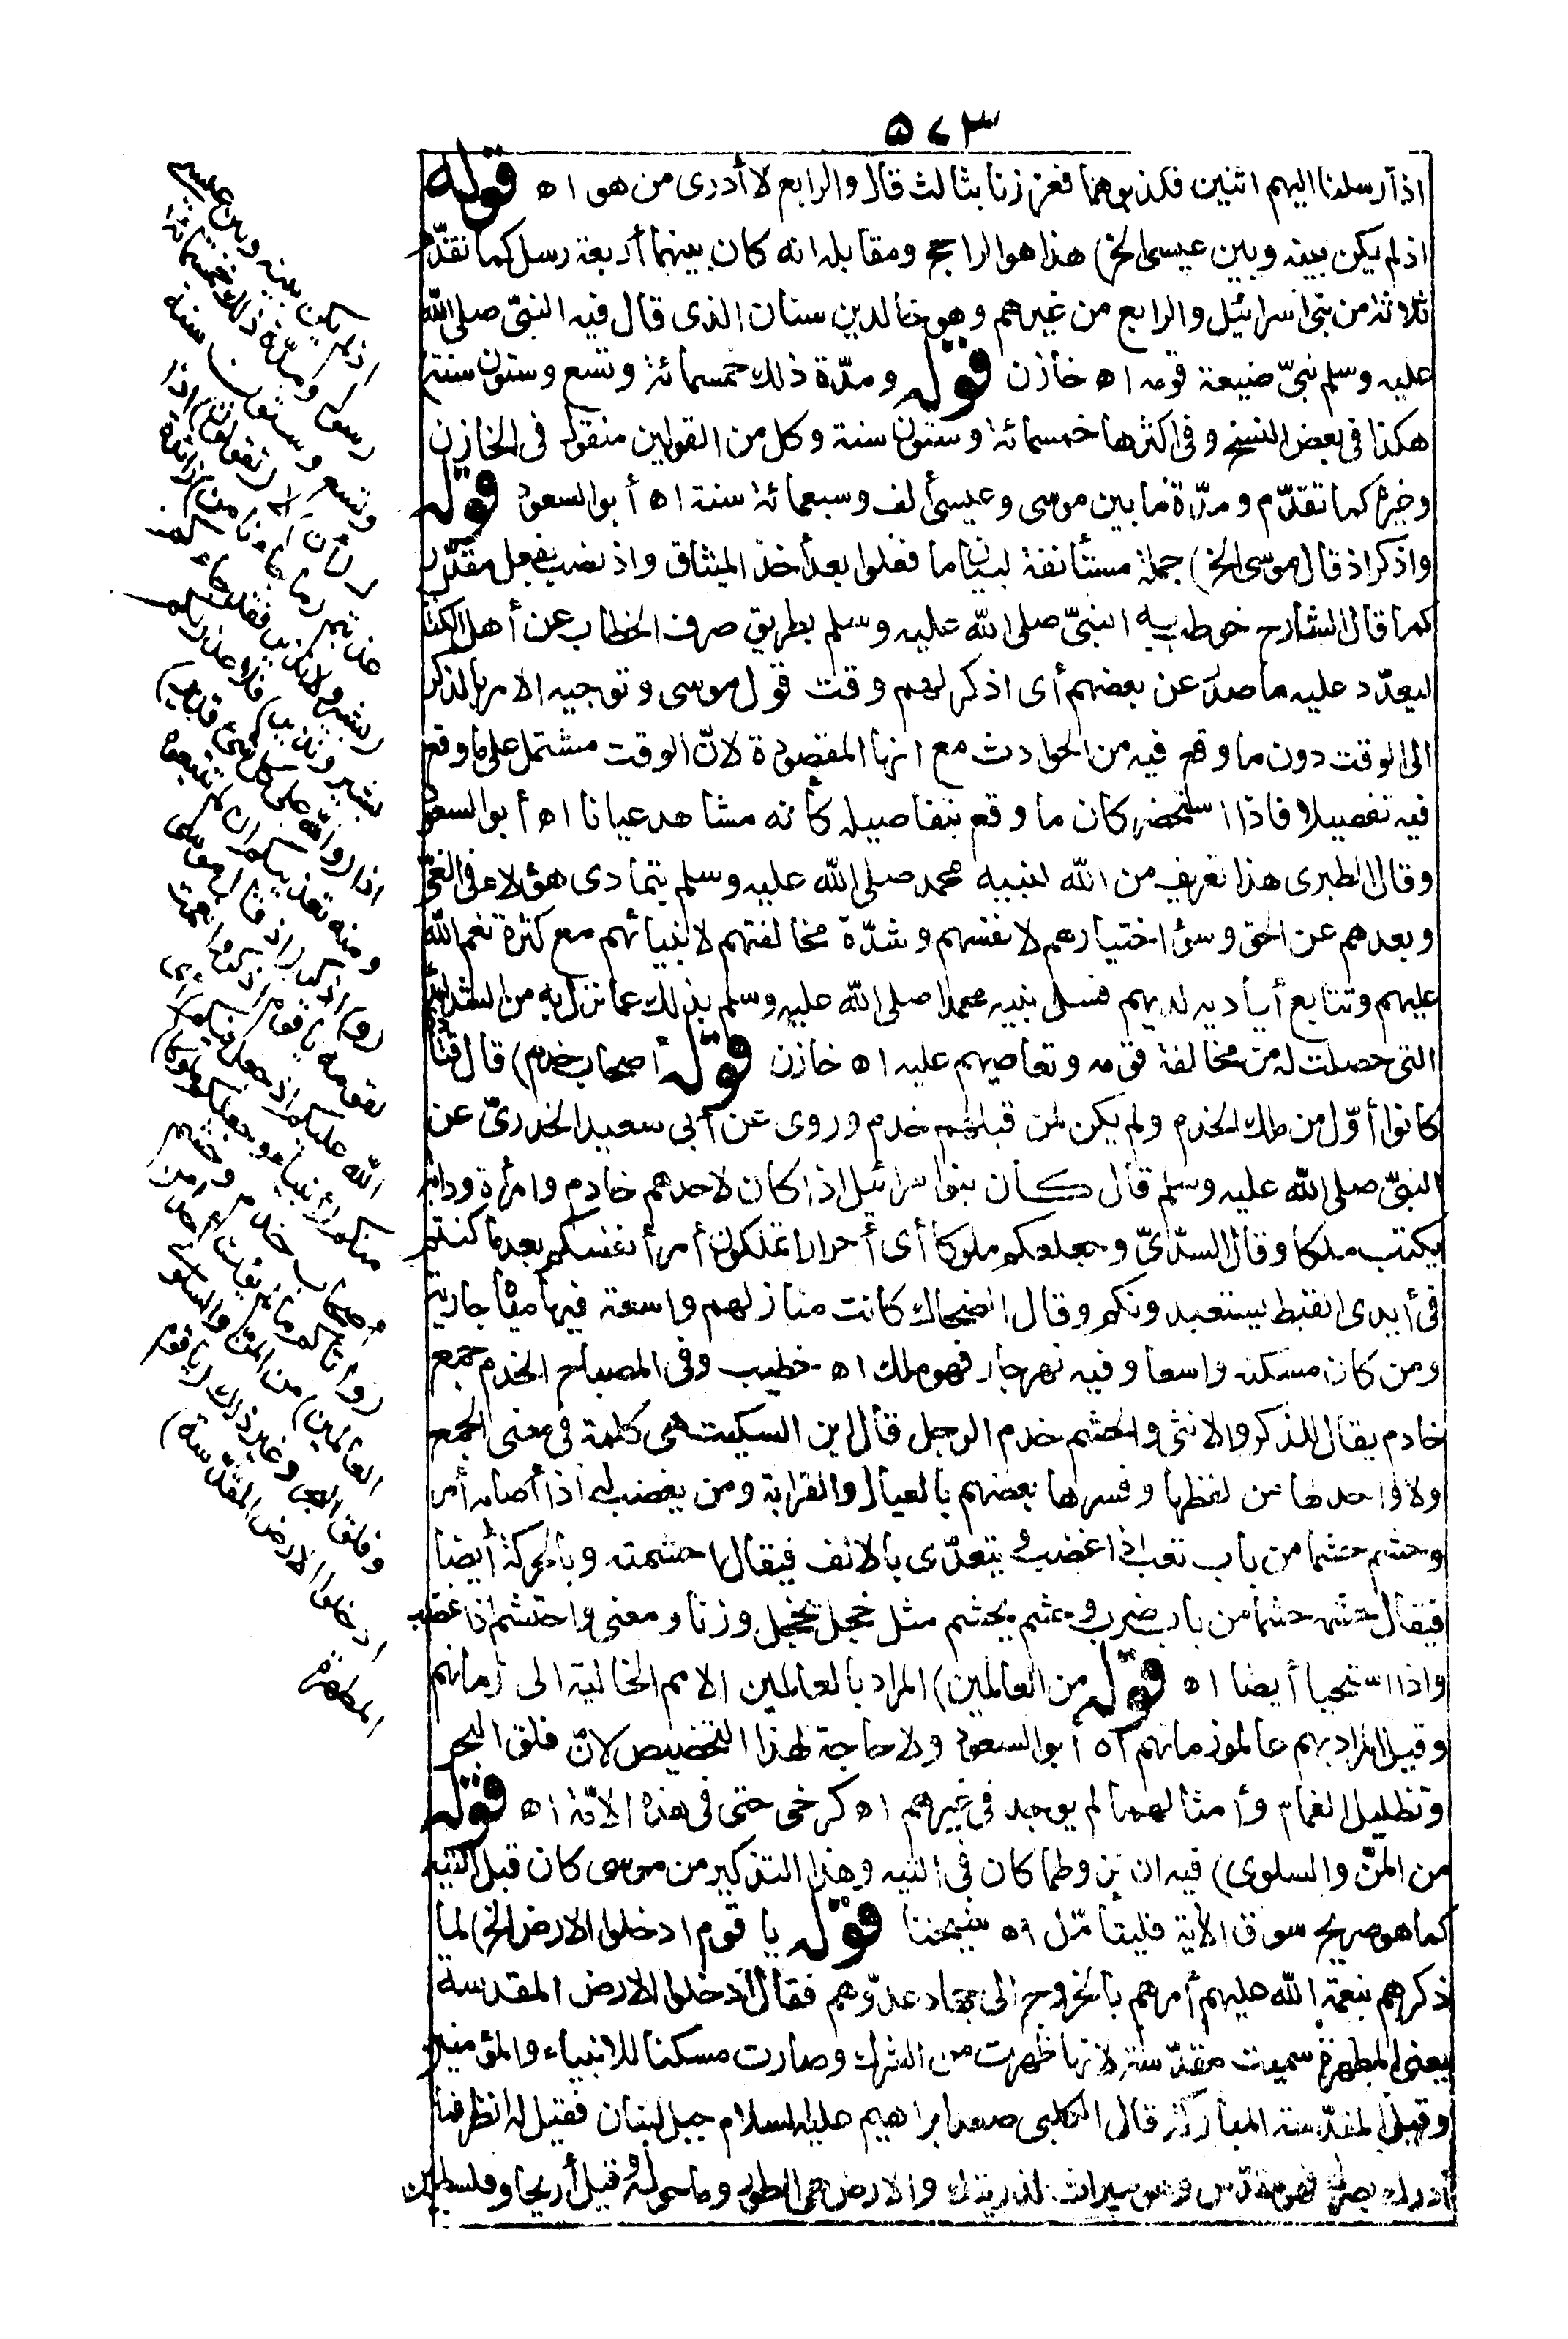 ٥٧٣
اذ أرسلنا اليهم اثنين فكذبوهما فعززنا بثالث قال والرابع لا أدرى من هو اه قوله
اذ لم يكن بينه وبين عيسى الخ) هذا هو الراجح ومقابله انه كان بينهما أربعة رسل كما تقدّم
ثلاثة من بنى اسرائيل والرابع من غيرهم وهو خالد بن سنان الذى قال فيه النبىّ صلى الله
عليه وسلم نبىّ ضيعه قومه اه خازن قوله ومدّة ذلك خمسمائة وتسع وستون سنة)
هكذا فى بعض النسخ وفى أكثرها خمسمائة وستون سنة وكل من القولين منقول فى الخازن
وغيره كما تقدّم ومدّة ما بين موسى وعيسى ألف وسبعمائة سنة اه أبو السعود قوله
واذكر اذ قال موسى الخ) جملة مستأنفة لبيان ما فعلوا بعد أخذ الميثاق واذ نصب بفعل مقدّر
كما قال الشارح خوطب به النبىّ صلى الله عليه وسلم بطريق صرف الخطاب عن أهل الكتا
ليعدّد عليه ما صدر عن بعضهم أى اذكر لهم وقت قول موسى وتوجيه الامر بالذكر
الى الوقت دون ما وقع فيه من الحوادث مع انها المقصودة لانّ الوقت مشتمل على ما وقع
فيه تفصيلا فاذا استحضر كان ما وقع بتفاصيله كأنه مشاهد عيانا اه أبو السعود
وقال الطبرى هذا تعريف من الله لنبيه محمد صلى الله عليه وسلم بتمادى هؤلاء فى الغىّ
وبعدهم عن الحق وسئ اختيارهم لانفسهم وشدّة مخالفتهم لانبيائهم مع كثرة نعم الله
عليهم وتتابع أياديه لديهم فسلى نبيه محمدا صلى الله عليه وسلم بذلك عما نزل به من الشدائد
التى حصلت له من مخالفة قومه وتعاصيهم عليه اه خازن قوله أصحاب خدم) قال قتادة
كانوا أوّل من ملك الخدم ولم يكن لمن قبلهم خدم وروى عن أبى سعيد الخدرىّ عن
النبىّ صلى الله عليه وسلم قال كان بنو اسرائيل اذا كان لاحدهم خادم وامرأة ودابة
يكتب ملكا وقال السدّىّ وجعلكم ملوكا أى أحرارا تملكون أمر أنفسكم بعد ما كنتم
فى أيدى القبط يستعبدونكم وقال الضحاك كانت منازلهم واسعة فيها مياه جارية
ومن كان مسكنه واسعا وفيه نهر جار فهو ملك اه خطيب وفى المصباح الخدم جمع
خادم يقال للذكر والانثى والحشم خدم الرجل قال ابن السكيت هى كلمة فى معنى الجمع
ولا واحد لها من لفظها وفسرها بعضهم بالعيال والقرابة ومن يغضب له اذا أصابه أمر
وحشم حشما من باب تعب اذا غضب ويتعدّى بالالف فيقال احشمته وبالحركة أيضا
فيقال حشمه حشما من باب ضرب وحشم يحشم مثل خجل يخجل وزنا ومعنى واحتشم اذا غضب
واذا استحيا أيضا اه قوله من العالمين) المراد بالعالمين الامم الخالية الى زمانهم
وقيل المراد بهم عالمو زمانهم اه أبو السعود ولا حاجة لهذا التخصيص لانّ فلق البحر
وتظليل الغمام وأمثالهما لم يوجد فى غيرهم اه كرخى حتى فى هذه الامّة اه قوله
من المنّ والسلوى) فيه ان نزولهما كان فى التيه وهذا التذكير من موسى كان قبل التيه
كما هو صريح سوق الآية فليتأمّل اه شيخنا قوله يا قوم ادخلوا الارض الخ) لما
ذكرهم بنعمة الله عليهم أمرهم بالخروج الى جهاد عدوّهم فقال ادخلوا الارض المقدسة
يعنى المطهرة سميت مقدّسة لانها طهرت من الشرك وصارت مسكنا للانبياء والمؤمنين
وقيل المقدّسة المباركة قال الكلبى صعد ابراهيم عليه السلام جبل لبنان فقيل له انظر فما
أدرك بصرك فهو مقدّس وهو ميراث لذريتك والارض هى الطور وما حوله وقيل أريحا وفلسطين
اذ لم يكن بينه وبين عيسى
رسول ومدّة ذلك خمسمائة
وتسع وستون سنة
لـ(أن) لا (تقولوا) اذا
عذبتم (ما جاءنا من) زائدة
(بشير ولا نذير فقد جاءكم
بشير ونذير) فلا عذر لكم
اذا (والله على كل شئ قدير)
ومنه تعذيبكم ان لم تتبعوه
(و) اذكر (اذ قال موسى
لقومه يا قوم اذكروا نعمت
الله عليكم اذ جعل فيكم) أى
منكم (أنبياء وجعلكم ملوكا)
أصحاب خدم وحشم
(وآتاكم ما لم يؤت أحدا من
العالمين) من المنّ والسلوى
وفلق البحر وغير ذلك (يا قوم
ادخلوا الارض المقدّسة)
المطهرة